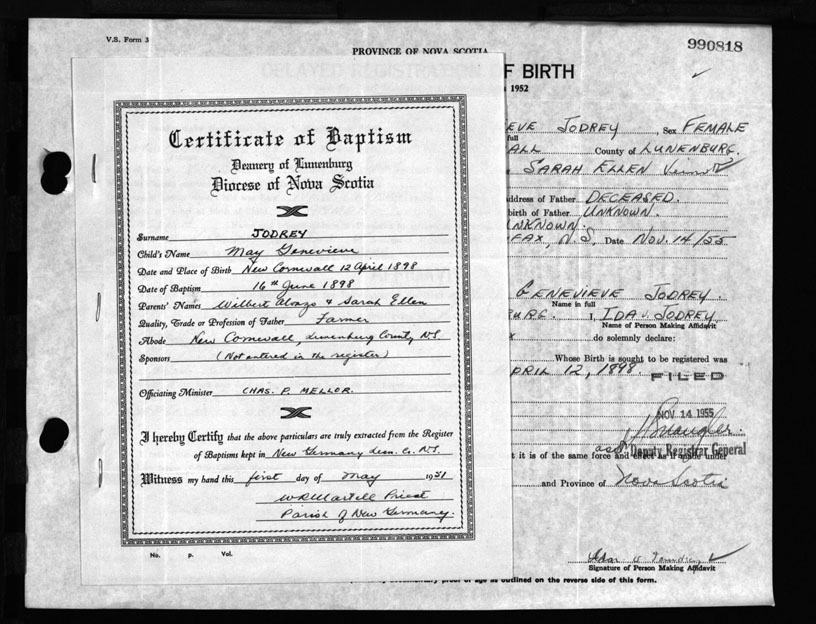 V.S. Form 3
990818
PROVINCE OF NOVA SCOTIA
DELAYED REGISTRATION OF BIRTH
1952
Certificate of Baptism
Deanery of Lunenburg
Diocese of Nova Scotia
Surname JODREY
Child's Name May Genevieve
Date and Place of Birth New Cornwall 12 April 1898
Date of Baptism 16th June 1898
Parents' Names Wilbert Alonzo & Sarah Ellen
Quality, Trade or Profession of Father Farmer
Abode New Cornwall, Lunenburg County N.S.
Sponsors (Not entered in the register)
Officiating Minister CHAS. P. MELLOR.
I hereby Certify that the above particulars are truly extracted from the Register
of Baptisms kept in New Germany Lun. Co. N.S.
Witness my hand this first day of May 1951
W R Martell Priest
Parish of New Germany.
No. p. Vol.
EVE JODREY, Sex FEMALE
full
ALL County of LUNENBURG.
SARAH ELLEN
address of Father DECEASED.
birth of Father UNKNOWN.
UNKNOWN.
FAX, N.S, Date NOV. 14/55
GENEVIEVE JODREY.
Name in full
URG. I, IDA V. JODREY
Name of Person Making Affidavit
do solemnly declare:
Whose Birth is sought to be registered was
PRIL 12, 1898.
FILED
NOV 14 1955
Deputy Registrar General
t it is of the same force and effect as if made under
and Province of Nova Scotia
Signature of Person Making Affidavit
proof of age as outlined on the reverse side of this form.